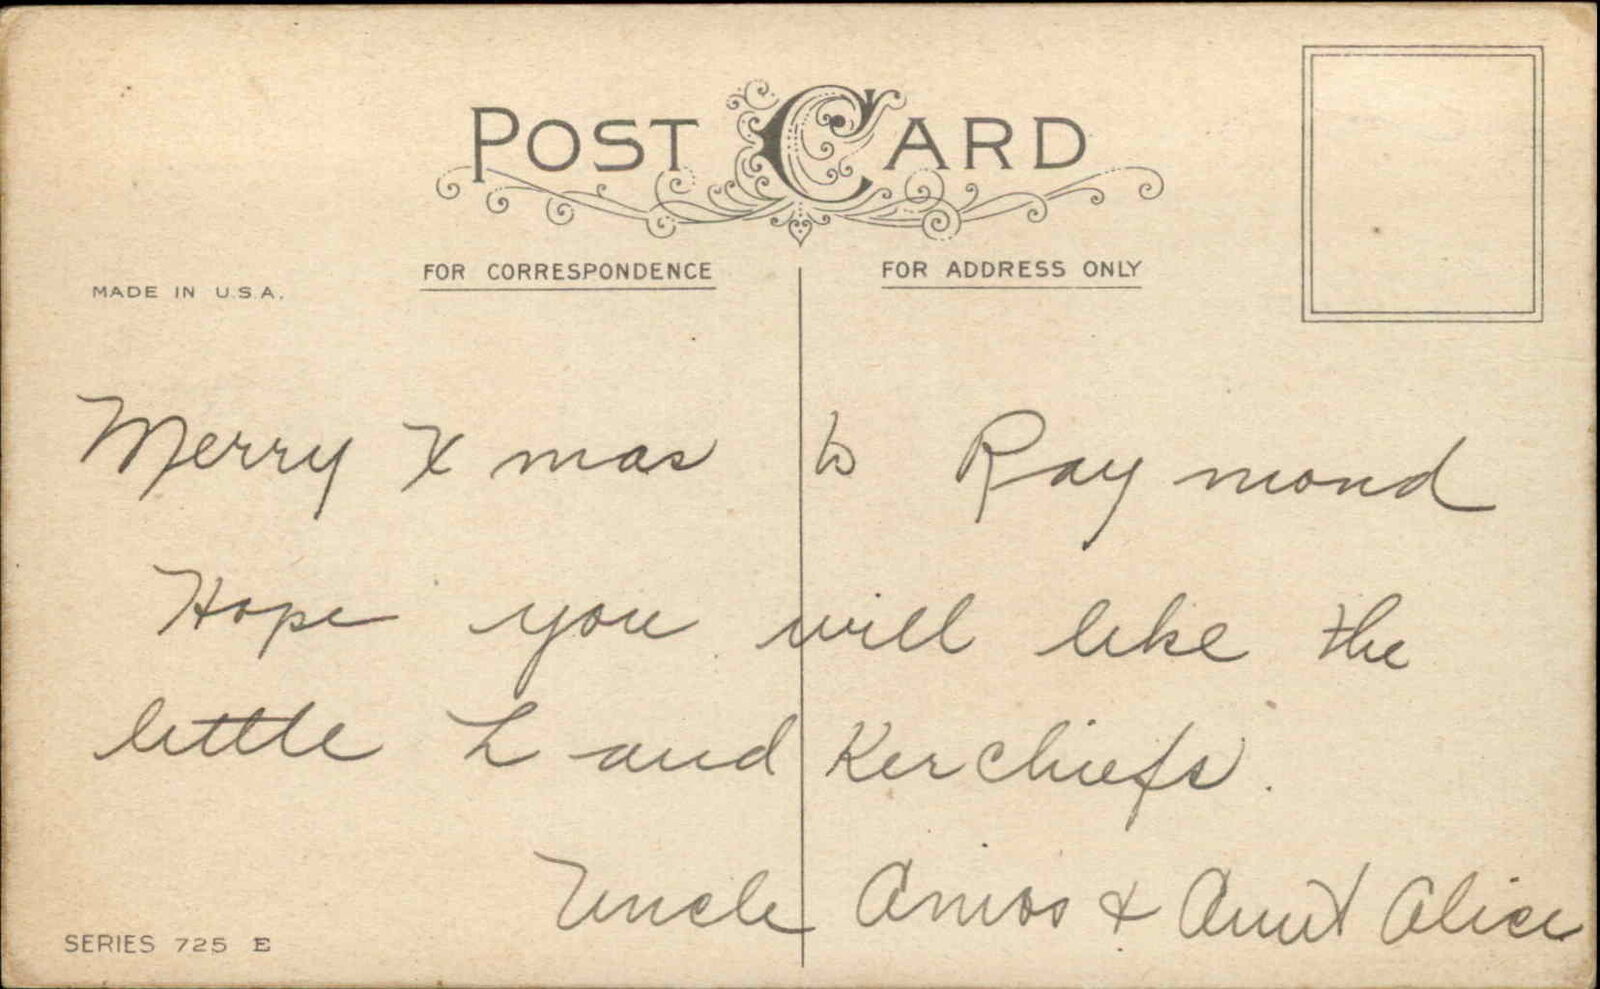 POST CARD
FOR CORRESPONDENCE
FOR ADDRESS ONLY
MADE IN U.S.A.
Merry Xmas to Raymond
Hope you will like the
little Hand Kerchiefs.
Uncle Amos & Aunt Alice
SERIES 725 E